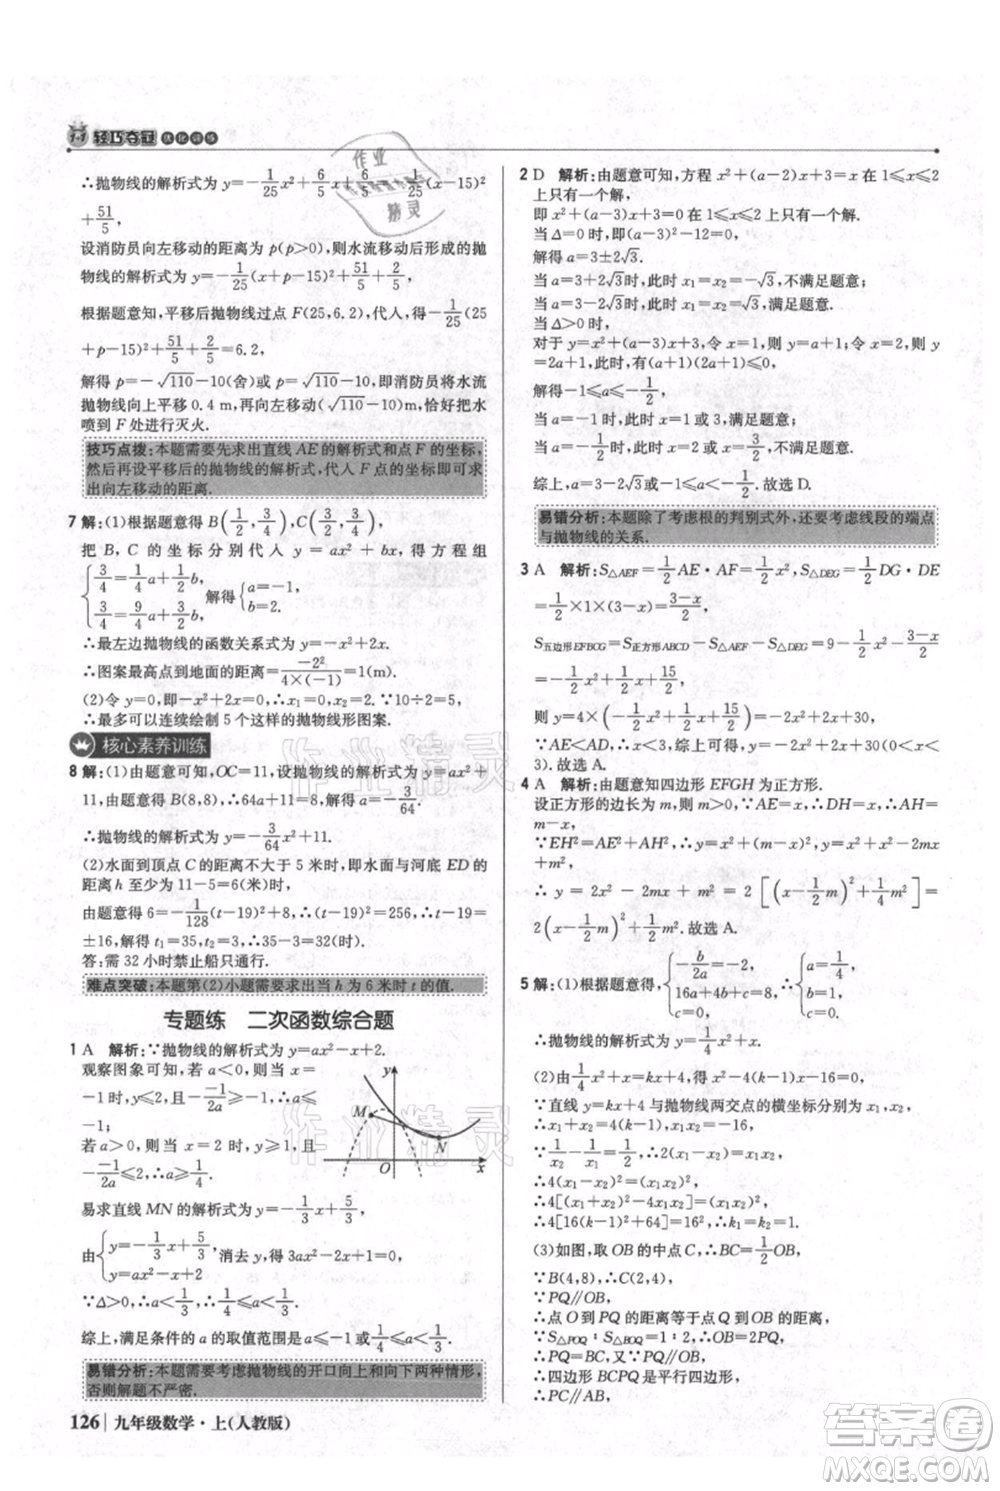 1+1 轻巧夺冠 优化训练
∴抛物线的解析式为 y=-1/25x²+6/5x+51/5=-1/25(x-15)²
+51/5.
设消防员向左移动的距离为 p(p>0),则水流移动后形成的抛
物线的解析式为 y=-1/25(x+p-15)²+51/5,
根据题意知,平移后抛物线过点 F(25,6.2),代人,得-1/25(25
+p-15)²+51/5=6.2,
解得 p=-√110-10(舍)或 p=√110-10,即消防员将水流
抛物线向上平移 0.4 m,再向左移动(√110-10)m,恰好把水
喷到 F 处进行灭火.
技巧点拨:本题需要先求出直线 AE 的解析式和点 F 的坐标,
然后再设平移后的抛物线的解析式,代人 F 点的坐标即可求
出向左移动的距离.
7 解:(1)根据题意得 B(1/2,3/4),C(3/2,3/4),
把 B,C 的坐标分别代人 y=ax²+bx,得方程组
{3/4=1/4a+1/2b, 3/4=9/4a+3/2b, 解得{a=-1, b=2.
∴最左边抛物线的函数关系式为 y=-x²+2x.
∴图案最高点到地面的距离=-2²/4×(-1)=1(m).
(2)令 y=0,即-x²+2x=0,∴x₁=0,x₂=2. 10÷2=5,
∴最多可以连续绘制 5 个这样的抛物线形图案.
核心素养训练
8 解:(1)由题意可知,OC=11,设抛物线的解析式为 y=ax²+
11,由题意得 B(8,8),∴64a+11=8,解得 a=-3/64,
∴抛物线的解析式为 y=-3/64x²+11.
(2)水面到顶点 C 的距离不大于 5 米时,即水面与河底 ED 的
距离 h 至少为 11-5=6(米),
由题意得 6=-1/128(t-19)²+8,∴(t-19)²=256,∴t-19=
±16,解得 t₁=35,t₂=3,∴35-3=32(时).
答:需 32 小时禁止船只通行.
难点突破:本题第(2)小题需要求出当 h 为 6 米时 t 的值.
专题练 二次函数综合题
1 A 解析:∵抛物线的解析式为 y=ax²-x+2.
观察图象可知,若 a<0,当 x=
-1 时,y≤2,且 -(-1)/2a≥-1,∴a≤
-1;
若 a>0,当 x=2 时,y≥1,且
-(-1)/2a≤2,∴a≥1/4.
易求直线 MN 的解析式为 y=-1/3x+5/3,
由{y=-1/3x+5/3, y=ax²-x+2, 消去 y 得 3ax²-2x+1=0.
∵Δ>0,∴a<1/3,∴1/4≤a<1/3.
综上,满足条件的 a 的取值范围是 a≤-1 或 1/4≤a<1/3.
易错分析:本题需要考虑抛物线的开口向上和向下两种情形,
否则解题不严密.
y
M
N
O
x
126 九年级数学·上(人教版)
2 D 解析:由题意可知,方程 x²+ax+3=3x 在 1≤x≤2
上只有一个解.
即 x²+(a-3)x+3=0 在 1≤x≤2 上只有一个解.
当 Δ=0 时,即(a-3)²-12=0.
解得 a=3±2√3.
当 a=3+2√3时,此时 x₁=x₂=-√3,不满足题意.
当 a=3-2√3时,此时 x₁=x₂=√3,满足题意.
当 Δ>0 时,
对于 y=x²+(a-3)x+3,令 x=1,y=a+1,令 x=2,y=
2a+1,此时,有(a+1)(2a+1)≤0,
解得-1≤a≤-1/2,
当 a=-1 时,此时 x=1 或 x=3,满足题意;
当 a=-1/2时,此时 x=2 或 x=3/2,不满足题意.
综上,a=3-2√3或-1≤a<-1/2.故选 D.
易错分析:本题除了考虑根的判别式外,还要考虑线段的端点
与抛物线的关系.
3 A 解析:S△AEF=1/2AE·AF=1/2x²,S△DEG=1/2DG·DE
=1/2×1×(3-x)=(3-x)/2,
S五边形EFBCG=S正方形ABCD-S△AEF-S△DEG=9-1/2x²-(3-x)/2=
-1/2x²+1/2x+15/2,
则 y=4×(-1/2x²+1/2x+15/2)=-2x²+2x+30,
∵AE<AD,∴x<3,综上可得 y=-2x²+2x+30(0<x<
3).故选 A.
4 A 解析:由题意知四边形 EFGH 为正方形.
设正方形的边长为 m,则 m>0,∵AE=x,∴DH=x,AH=
m-x,
∵EH²=AE²+AH²,∴y=x²+(m-x)²,y=x²+x²-2mx
+m²=
∴ y = 2x² - 2mx + m² = 2[(x-1/2m)²+1/4m²] =
2(x-1/2m)²+1/2m².故选 A.
5 解:(1)由题意得{-b/2a=-2, 16a+4b+c=8, c=0, ∴{a=1/4, b=1, c=0.
∴抛物线的解析式为 y=1/4x²+x.
(2)由1/4x²+x=kx+4,得 x²-4(k-1)x-16=0.
∵直线 y=kx+4 与抛物线两交点的横坐标分别为 x₁,x₂,
∴x₁+x₂=4(k-1),x₁x₂=-16,
∵1/x₂-1/x₁=1/2,∴(x₁-x₂)/(x₁x₂)=1/2,∴2(x₁-x₂)=x₁x₂.
∴4(x₁-x₂)²=(x₁x₂)²,
∴4[(x₁+x₂)²-4x₁x₂]=(x₁x₂)².
∴4[16(k-1)²+64]=16²,∴k=1.
(3)如图,取 OB 的中点 C,∴BC=1/2OB,
∵B(4,8),∴C(2,4),
∵PQ∥OB,
∴点 O 到 PQ 的距离等于点 Q 到 OB 的距离.
∵S△POQ∶S△BOQ=1∶2,∴OB=2PQ,
∴PQ=BC,∵PQ∥OB,
∴四边形 BCPQ 是平行四边形,
∴PC∥AB.
作业精灵
作业精灵
作业精灵
答案圈
MXQE.COM